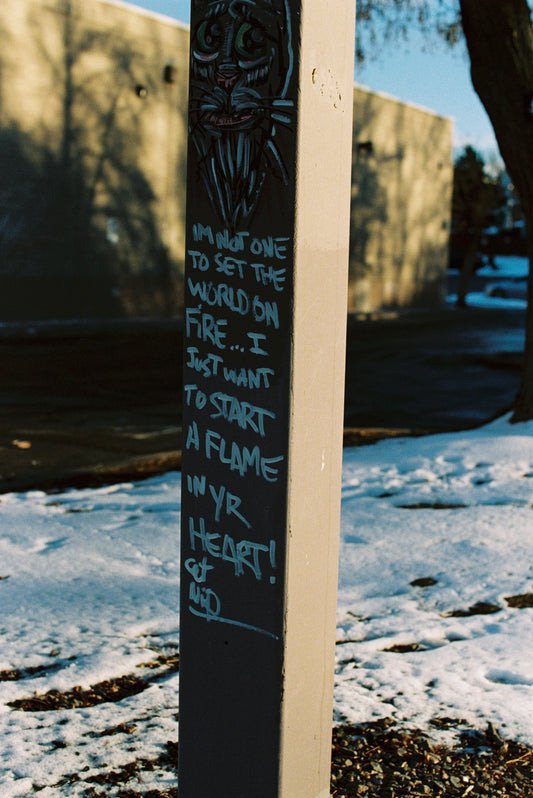 IM NOT ONE
TO SET THE
WORLD ON
FIRE... I
JUST WANT
TO START
A FLAME
IN YR
HEART!